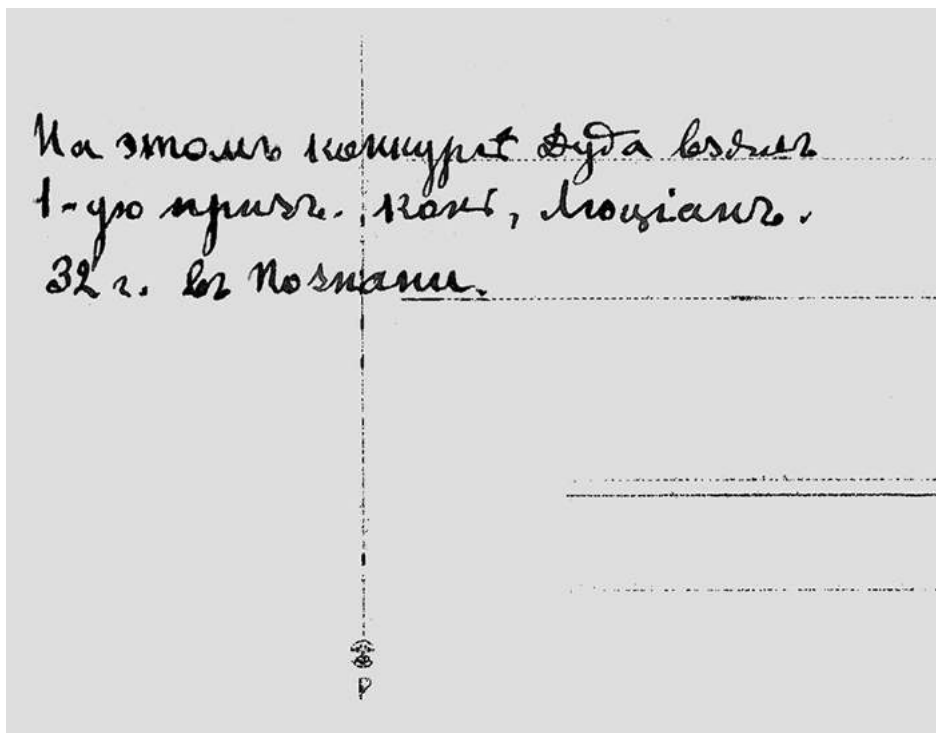 На этомъ конкурсѣ Дуда взялъ
1-ую призъ. конь, Люціанъ.
32 г. въ Познани.
P